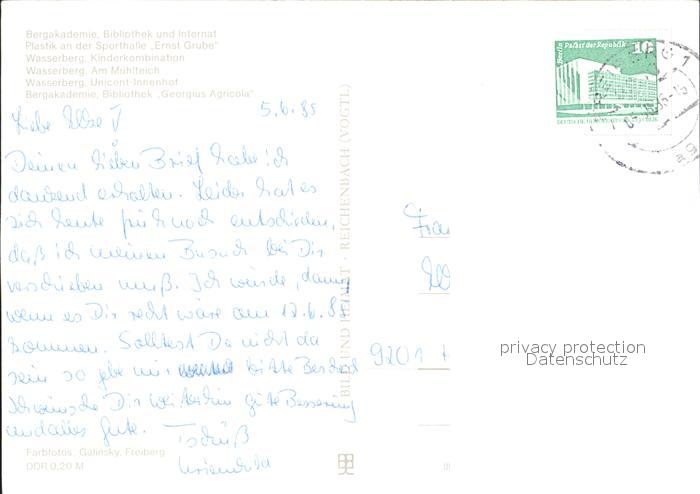 Bergakademie, Bibliothek und Internat
Plastik an der Sporthalle „Ernst Grube"
Wasserberg, Kinderkombination
Wasserberg, Am Mühlteich
Wasserberg, Unicent-Innenhof
Bergakademie, Bibliothek „Georgius Agricola"
5.6.85
Liebe Ilse!
Deinen lieben Brief habe ich
dankend erhalten. Leider hat es
sich heute früh noch entschieden,
daß ich meinen Besuch bei Dir
verschieben muß. Ich würde, dann,
wenn es Dir recht wäre am 12.6.85
kommen. Solltest Du nicht da
sein so gebe mir bitte Bescheid
Ich wünsche Dir weiterhin gute Besserung
und alles Gute. Tschüß
Farbfotos, Galinsky, Freiberg
DDR 0,20 M
BILD UND HEIMAT · REICHENBACH (VOGTL)
Berlin Palast der Republik
10
DEUTSCHE DEMOKRATISCHE REPUBLIK
Frau
9201
privacy protection
Datenschutz